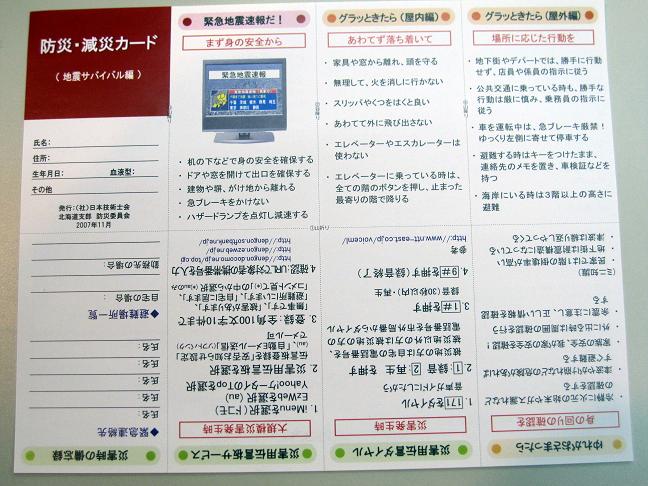 防災・減災カード
（ 地震サバイバル編 ）
氏名:
住所:
生年月日:　血液型:
その他
発行：（社）日本技術士会
北海道支部 防災委員会
2007年11月
緊急地震速報だ！
まず身の安全から
緊急地震速報
・ 机の下などで身の安全を確保する
・ ドアや窓を開けて出口を確保する
・ 建物や塀、がけ地から離れる
・ 急ブレーキをかけない
・ ハザードランプを点灯し減速する
グラッときたら（屋内編）
あわてず落ち着いて
・ 家具や窓から離れ、頭を守る
・ 無理して、火を消しに行かない
・ スリッパやくつをはくと良い
・ あわてて外に飛び出さない
・ エレベーターやエスカレーターは
使わない
・ エレベーターに乗っている時は、
全ての階のボタンを押し、止まった
最寄りの階で降りる
グラッときたら（屋外編）
場所に応じた行動を
・ 地下街やデパートでは、勝手に行動
せず、店員や係員の指示に従う
・ 公共交通に乗っている時も、勝手な
行動は厳に慎み、乗務員の指示に
従う
・ 車を運転中は、急ブレーキ厳禁！
ゆっくり左側に寄せて停車する
・ 避難する時はキーをつけたまま、
連絡先のメモを置き、車検証などを
持つ
・ 海岸にいる時は３階以上の高さに
避難
ゆれがおさまったら
身の回りの確認を
・ 冷静に火の始末やガス漏れなど
の確認をする
・ 津波やがけ崩れなどの危険があれば
すぐ避難する
・ 家族の安否、我が家の安全を確認！
・ 外に出る時は周囲の確認を行う
・ 余震に注意し、正しい情報を得る
（ミニ知識）
・ 民家では１階の倒壊率が高い
・ 地下街は耐震構造になっている
・ 津波は繰り返しやってくる
災害用伝言ダイヤル
災害発生時
1. 171をダイヤル
音声ガイドにしたがい
2. 1：録音 2：再生 を押す
被災地の方は自宅の電話番号、
被災地以外の方は被災地の方の
電話番号を市外局番からダイヤル
3. 1#を押す
録音（30秒以内）・再生
4. 9#を押す（録音終了）
参考
http://www.ntt-east.co.jp/voiceml/
災害用伝言板サービス
大規模災害発生時
1. iMenuを選択（ドコモ）
EzWebを選択（au）
Yahoo!ケータイのTopを選択
2. 災害用伝言板を選択
3. 登録：全角100文字10件まで
4. 確認：URLで対象者の携帯番号を入力
http://dengon.docomo.ne.jp/top.cgi
http://dengon.ezweb.ne.jp/
http://dengon.softbank.ne.jp/
災害時の備忘録
◆緊急連絡先
氏名
氏名
氏名
氏名
◆避難場所一覧
自宅の場合
勤務先の場合